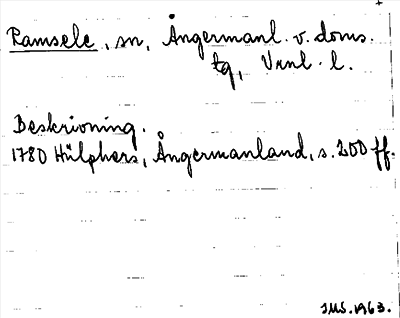 Ramsele, sn, Ångermanl. v. doms.
tg, Vrnl. l.
Beskrivning.
1780 Hülphers, Ångermanland, s. 200 ff.
IMS. 1963.